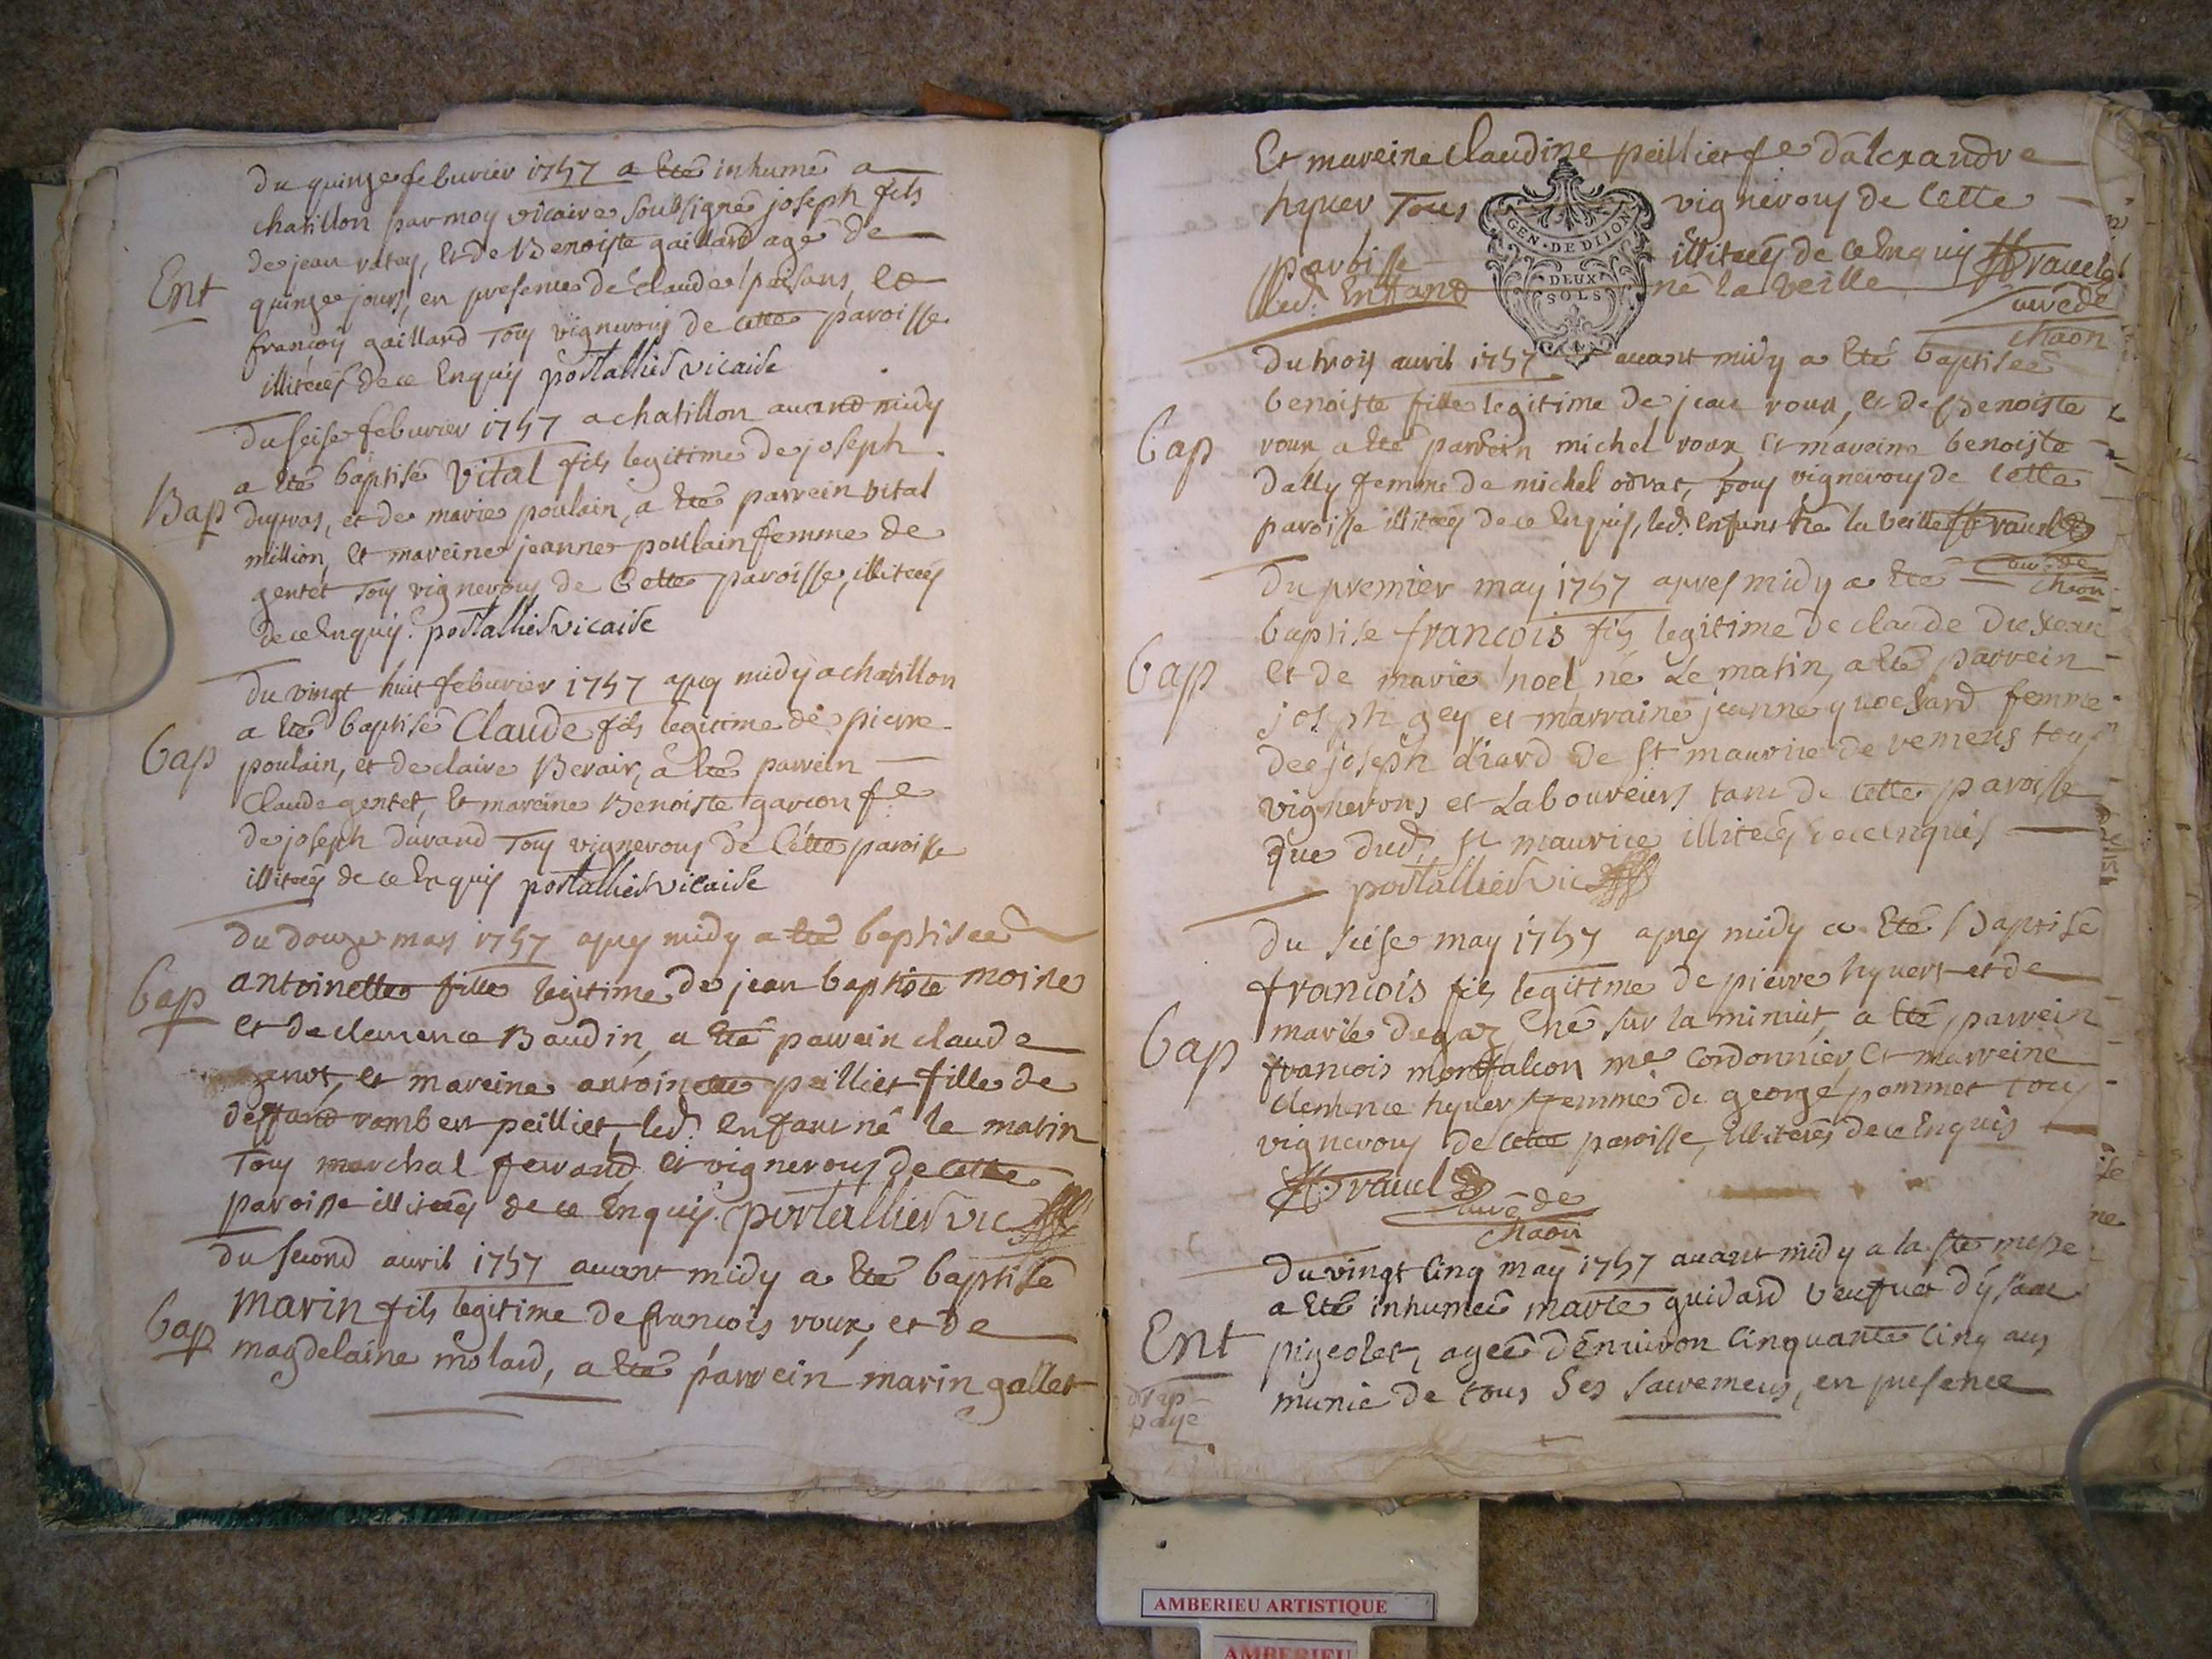 du quinze feburier 1757 a Eté inhumé a
chatillon par moy vicaire soubsigné joseph fils
de jean et de Benoiste gaillard agé de
Ent
quinze jours, en presence de claude et
françois gaillard Tous vignerons de cette paroisse
illiterés de ce Enquis portallier vicaire
du seise feburier 1757 a chatillon avand midy
a Eté baptisé Vital fils legitime de joseph
Bap
et de marie poulain, a Eté parrein vital
million, Et mareine jeanne poulain femme de
gentet Tous vignerons de Cette paroisse, illiterés
de ce Enquis. portallier vicaire
du vingt huit feburier 1757 apres midy a chatillon
a Eté baptisé Claude fils legitime de pierre
bap
poulain, et de claire Berair, a Eté parrein
Claude gentet, Et mareine Benoiste garcon fe
de joseph durand Tous vignerons de Cette paroisse
illiterés de ce Enquis portallier vicaire
du douze mars 1757 apres midy a Eté baptisée
bap
antoinette fille legitime de jean baptiste moine
et de clemence Baudin, a Eté parrein claude
et mareine antoinette peilliet fille de
rambert peilliet, led. enfant né le matin
Tous marchal ferrand, et vignerons de cette
paroisse illiterés de ce Enquis. portallier vic
du second avril 1757 avant midy a Eté baptisé
bap
marin fils legitime de francois roux, et de
magdelaine molard, a Eté parrein marin gallet
Et mareine Claudine peilliet fe d'alexandre
hyver Tous vignerons de Cette
GEN. DE DIJON
DEUX
SOLS
paroisse illiterés de ce Enquis
led. Enfand né la veille curé de
chaon
du trois avril 1757 avant midy a Eté baptisée
benoiste fille legitime de jean roux, et de Benoiste
bap
roux a Eté parrein michel roux, Et mareine benoiste
dally femme de michel orvat, tous vignerons de Cette
paroisse illiterés de ce Enquis, led. enfant né la veille
curé de
chaon
du premier may 1757 apres midy a Eté
baptise francois fils legitime de claude
bap
et de marie noel né Le matin, a Eté parrein
joseph gey et marraine jeanne quochard femme
de joseph diard de St maurice de remens tous
vignerons et Laboureurs tant de Cette paroisse
que dud. St maurice illiterés de ce enquis
portallier vic
du seise may 1757 apres midy a Eté Baptisé
francois fils legitime de pierre hyvert et de
bap
marie dugaz né sur la minuit, a Eté parrein
francois montfalcon me Cordonnier, Et marreine
clemence hyver femme de george pommet tous
vignerons de cette paroisse, illiterés de ce Enquis
curé de
chaon
du vingt Cinq may 1757 avant midy a la ste messe
a Eté inhumeé marie guidard veufue d'ysaac
Ent
pigeolet, ageé d'environ Cinquante Cinq ans
drap
payé
munie de tous Ses Sacremens, en presence
AMBERIEU ARTISTIQUE
AMBERIEU